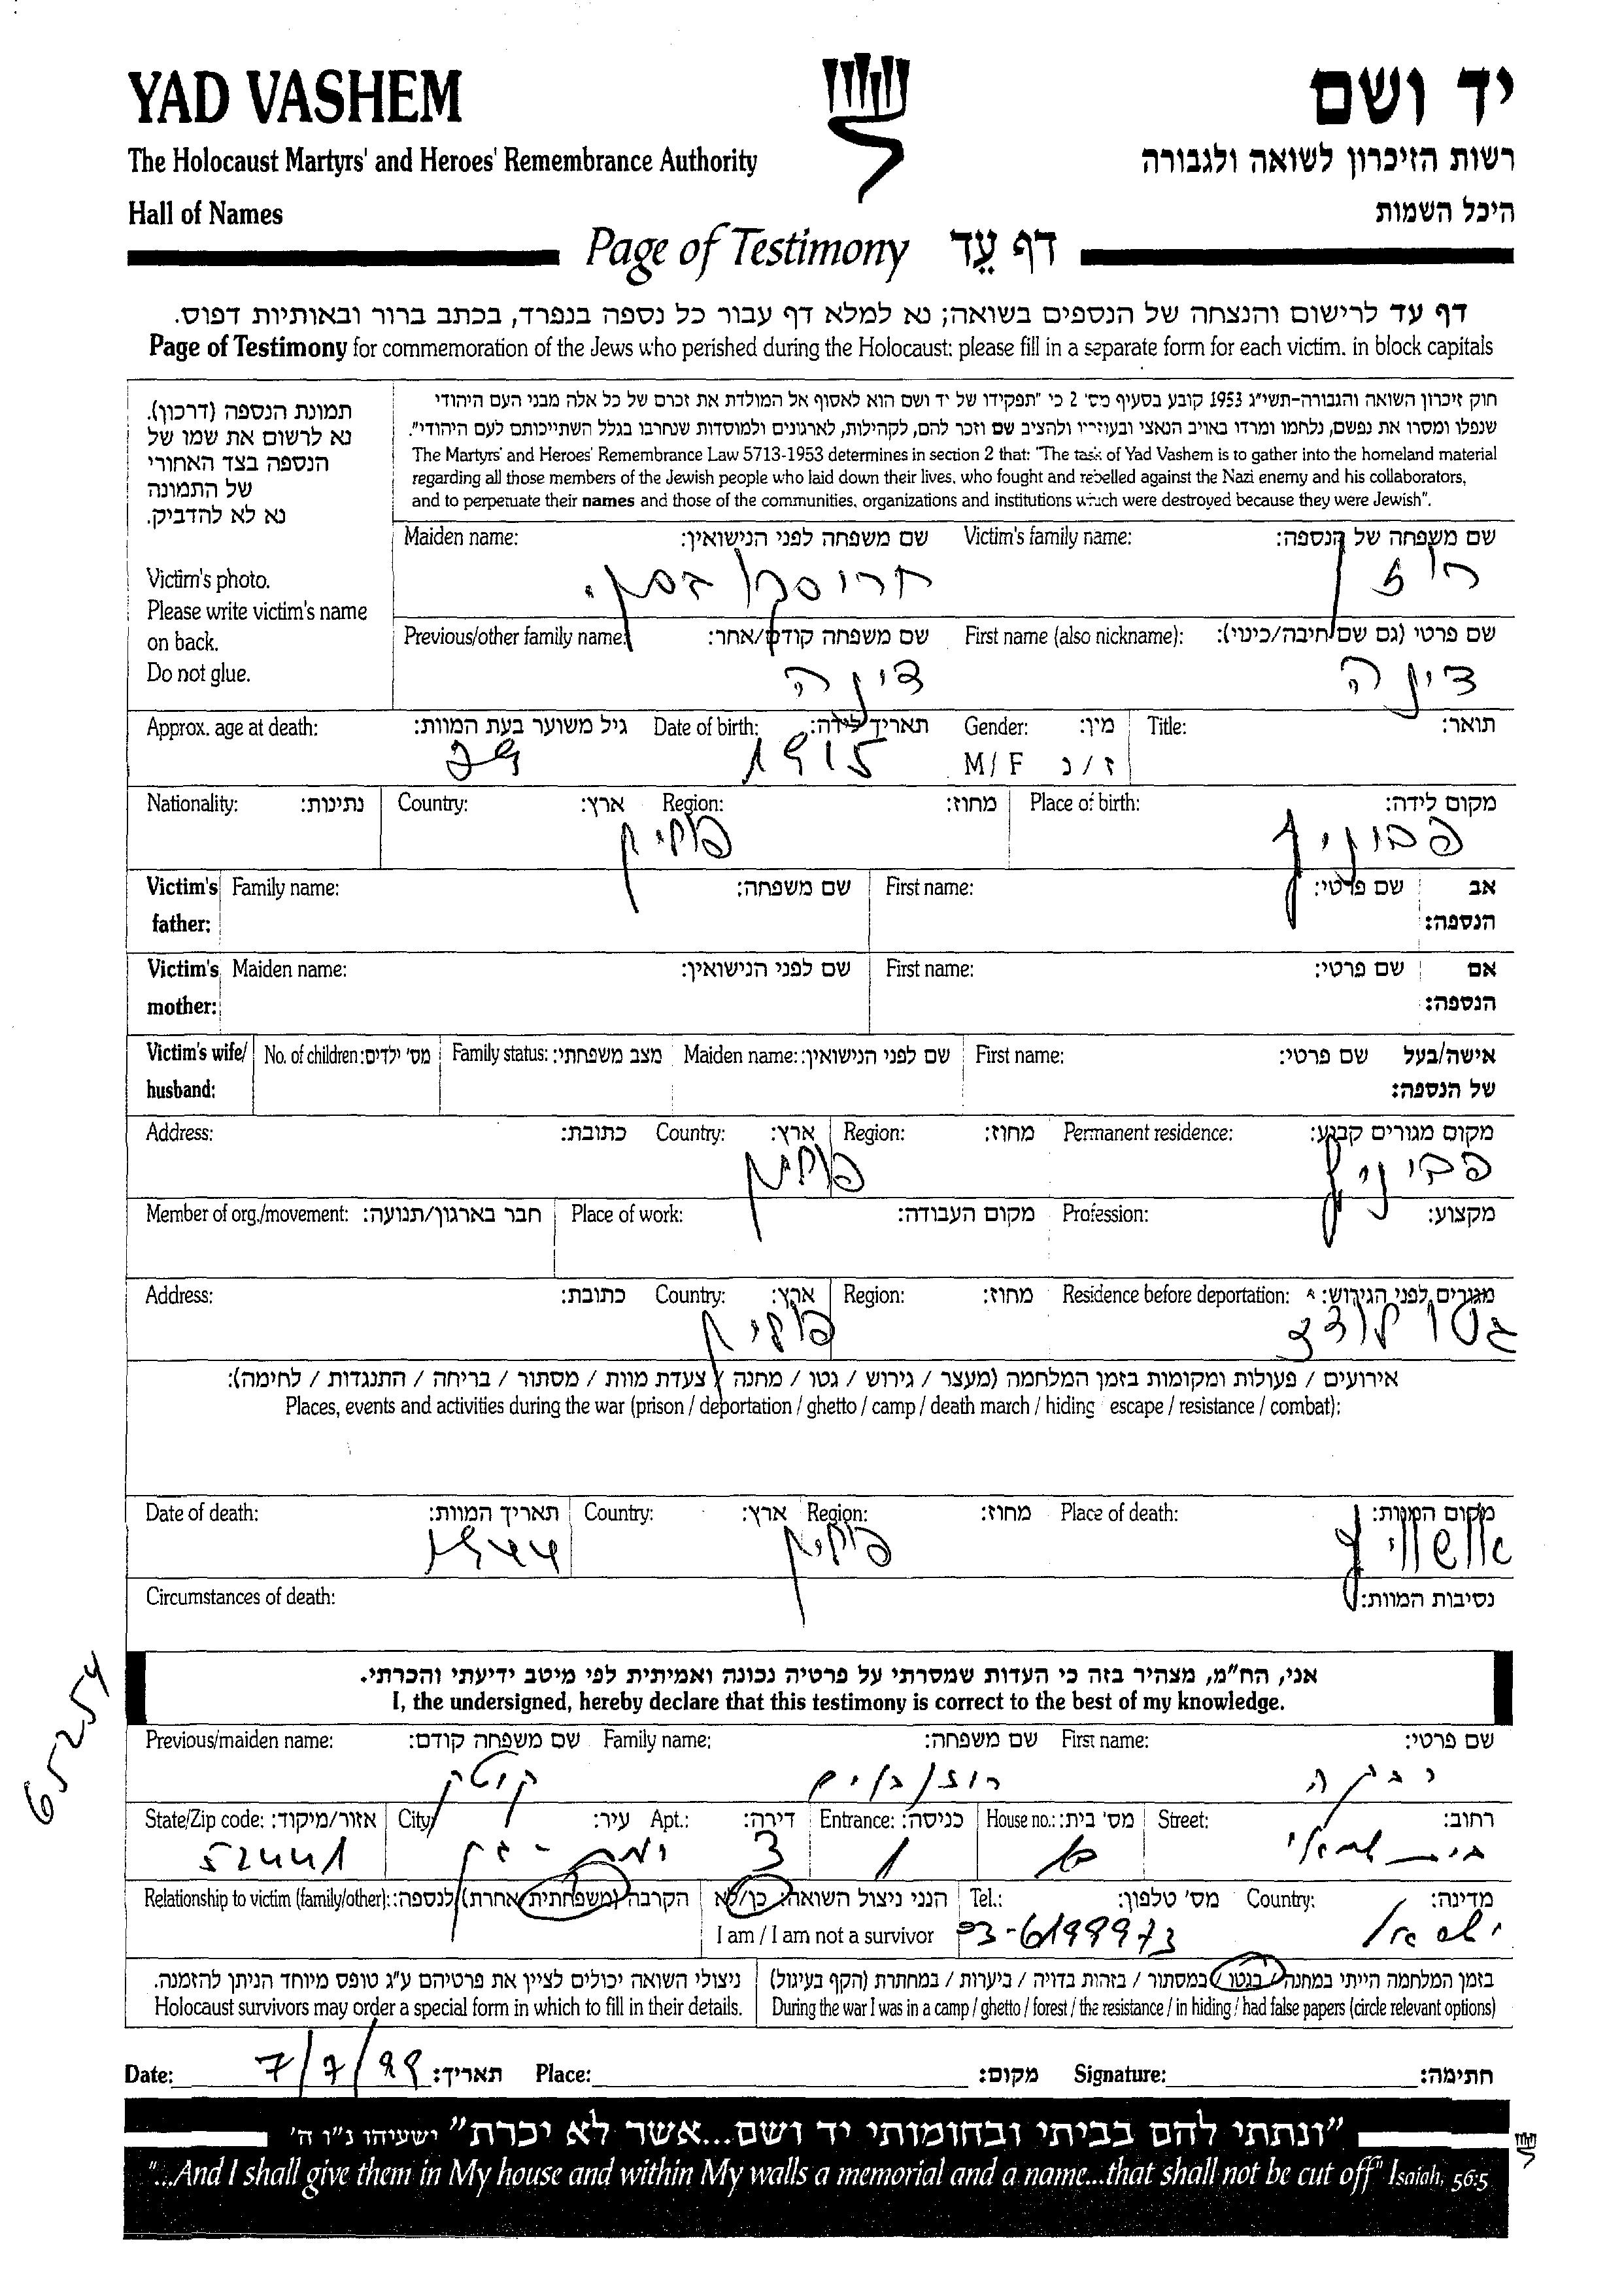 YAD VASHEM
יד ושם
The Holocaust Martyrs' and Heroes' Remembrance Authority
רשות הזיכרון לשואה ולגבורה
Hall of Names
היכל השמות
Page of Testimony דף עֵד
דף עד לרישום והנצחה של הנספים בשואה; נא למלא דף עבור כל נספה בנפרד, בכתב ברור ובאותיות דפוס.
Page of Testimony for commemoration of the Jews who perished during the Holocaust; please fill in a separate form for each victim. in block capitals
תמונת הנספה (דרכון).
נא לרשום את שמו של
הנספה בצד האחורי
של התמונה
נא לא להדביק.
Victim's photo.
Please write victim's name
on back.
Do not glue.
חוק זיכרון השואה והגבורה-תשי"ג 1953 קובע בסעיף מס' 2 כי "תפקידו של יד ושם הוא לאסוף אל המולדת את זכרם של כל אלה מבני העם היהודי
שנפלו ומסרו את נפשם, נלחמו ומרדו באויב הנאצי ובעוזריו ולהציב שם וזכר להם, לקהילות, לארגונים ולמוסדות שנחרבו בגלל השתייכותם לעם היהודי".
The Martyrs' and Heroes' Remembrance Law 5713-1953 determines in section 2 that: "The task of Yad Vashem is to gather into the homeland material
regarding all those members of the Jewish people who laid down their lives, who fought and rebelled against the Nazi enemy and his collaborators,
and to perpetuate their names and those of the communities, organizations and institutions which were destroyed because they were Jewish".
Maiden name: שם משפחה לפני הנישואין: Victim's family name: שם משפחה של הנספה:
Previous/other family name: שם משפחה קודם/אחר: First name (also nickname): שם פרטי (גם שם חיבה/כינוי):
דינה דינה
Approx. age at death: גיל משוער בעת המוות: Date of birth: תאריך לידה: Gender: מין: Title: תואר:
29 1915 M/F ז/נ
Nationality: נתינות: Country: ארץ: Region: מחוז: Place of birth: מקום לידה:
פולין פביניץ
Victim's father: Family name: שם משפחה: First name: שם פרטי: אב הנספה:
Victim's mother: Maiden name: שם לפני הנישואין: First name: שם פרטי: אם הנספה:
Victim's wife/ husband: No. of children: מס' ילדים: Family status: מצב משפחתי: Maiden name: שם לפני הנישואין: First name: שם פרטי: אישה/בעל של הנספה:
Address: כתובת: Country: ארץ: Region: מחוז: Permanent residence: מקום מגורים קבוע:
פולין פביניץ
Member of org./movement: חבר בארגון/תנועה: Place of work: מקום העבודה: Profession: מקצוע:
Address: כתובת: Country: ארץ: Region: מחוז: Residence before deportation: מגורים לפני הגירוש:
פולין גטו לודז
אירועים / פעולות ומקומות בזמן המלחמה (מעצר / גירוש / גטו / מחנה / צעדת מוות / מסתור / בריחה / התנגדות / לחימה):
Places, events and activities during the war (prison / deportation / ghetto / camp / death march / hiding escape / resistance / combat):
Date of death: תאריך המוות: Country: ארץ: Region: מחוז: Place of death: מקום המוות:
1944 פולין אושוויץ
Circumstances of death: נסיבות המוות:
אני, הח"מ, מצהיר בזה כי העדות שמסרתי על פרטיה נכונה ואמיתית לפי מיטב ידיעתי והכרתי.
I, the undersigned, hereby declare that this testimony is correct to the best of my knowledge.
65254
Previous/maiden name: שם משפחה קודם: Family name: שם משפחה: First name: שם פרטי:
רוזנבוים רבקה
State/Zip code: אזור/מיקוד: City: עיר: Apt.: דירה: Entrance: כניסה: House no.: מס' בית: Street: רחוב:
52441 רמת-גן 3 1
Relationship to victim (family/other): הקרבה (משפחתית/אחרת) לנספה: הנני ניצול השואה: כן/לא Tel.: מס' טלפון: Country: מדינה:
I am / I am not a survivor 03-6199973 ישראל
ניצולי השואה יכולים לציין את פרטיהם ע"ג טופס מיוחד הניתן להזמנה. בזמן המלחמה הייתי במחנה / בגטו / במסתור / בזהות בדויה / ביערות / במחתרת (הקף בעיגול)
Holocaust survivors may order a special form in which to fill in their details. During the war I was in a camp / ghetto / forest / the resistance / in hiding / had false papers (circle relevant options)
Date: 7/7/99 תאריך: Place: מקום: Signature: חתימה:
"ונתתי להם בביתי ובחומותי יד ושם...אשר לא יכרת" ישעיהו נ"ו ה'
"...And I shall give them in My house and within My walls a memorial and a name...that shall not be cut off" Isaiah, 56:5